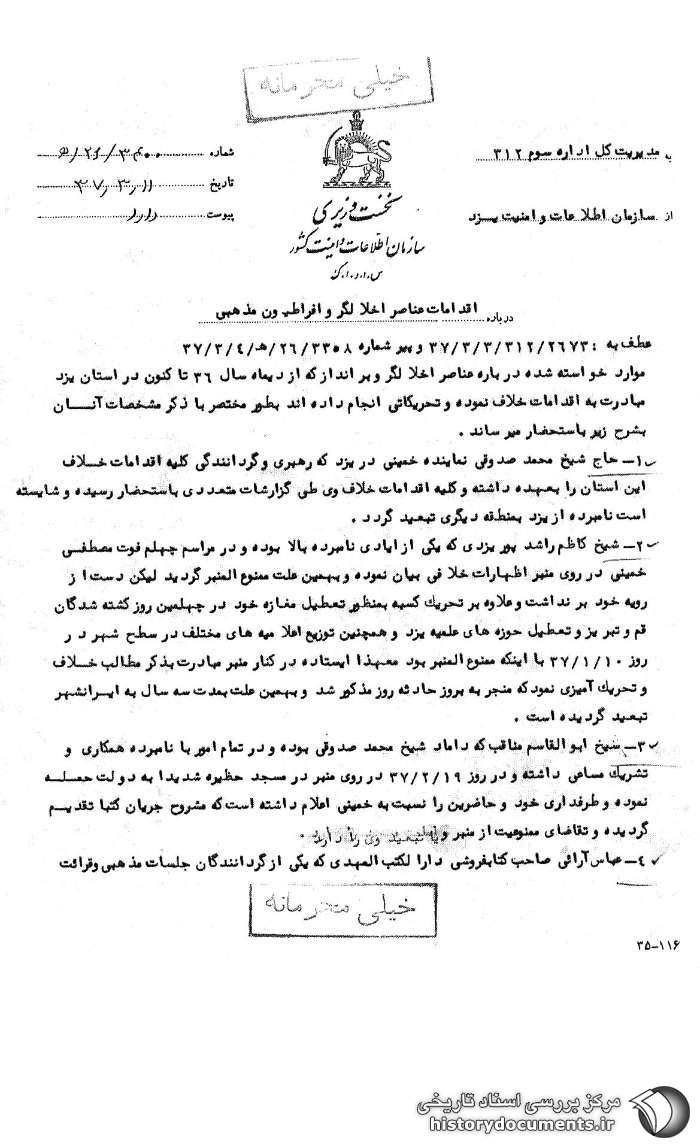 خیلی محرمانه
به مدیریت کل اداره سوم ۳۱۲
شماره
از سازمان اطلاعات و امنیت یزد
تاریخ ۳۷٫۳٫۱۱
پیوست دارد
نخست وزیری
سازمان اطلاعات و امنیت کشور
س.ا.و.ا.ک
درباره اقدامات عناصر اخلالگر و افراطیون مذهبی
عطف به : ۳۷/۳/۳/۳۱۲/۲۶۷۳ و پیرو شماره ۲۶/۳۳۰۸/هـ/۳۷/۳/۴
موارد خواسته شده درباره عناصر اخلالگر و برانداز که از دیماه سال ۳۶ تا کنون در استان یزد
مبادرت به اقدامات خلاف نموده و تحریکاتی انجام داده اند بطور مختصر با ذکر مشخصات آنـــان
بشرح زیر باستحضار میرساند .
۱ـ حاج شیخ محمد صدوقی نماینده خمینی در یزد که رهبری و گردانندگی کلیه اقدامات خـــلاف
این استان را بعهده داشته و کلیه اقدامات خلاف وی طی گزارشات متعددی باستحضار رسیده و شایسته
است نامبرده از یزد بمنطقه دیگری تبعید گردد .
۲ـ شیخ کاظم راشد پور یزدی که یکی از ایادی نامبرده بالا بوده و در مراسم چهلم فوت مصطفـی
خمینی در روی منبر اظهارات خلافی بیان نموده و بهمین علت ممنوع المنبر گردید لیکن دست از
رویه خود بر نداشت و علاوه بر تحریک کسبه بمنظور تعطیل مغازه خود در چهلمین روز کشته شدگان
قم و تبریز و تعطیل حوزه های علمیه یزد و همچنین توزیع اعلامیه های مختلف در سطح شهر در
روز ۳۷/۱/۱۰ با اینکه ممنوع المنبر بود معهذا ایستاده در کنار منبر مبادرت بذکر مطالب خـلاف
و تحریک آمیزی نمود که منجر به بروز حادثه روز مذکور شد و بهمین علت بمدت سه سال به ایرانشهر
تبعید گردیده است .
۳ـ شیخ ابوالقاسم مناقب که داماد شیخ محمد صدوقی بوده و در تمام امور با نامبرده همکاری و
تشریک مساعی داشته و در روز ۳۷/۲/۱۹ در روی منبر در مسجد حظیره شدیدا به دولت حملـــه
نموده و طرفداری خود و حاضرین را نسبت به خمینی اعلام داشته است که مشروح جریان کتبا تقدیـم
گردیده و تقاضای ممنوعیت از منبر و یا تبعید وی را دارد .
۴ـ عباس آرائی صاحب کتابفروشی دارالکتب المهدی که یکی از گردانندگان جلسات مذهبی و قرائت
خیلی محرمانه
۳۵-۱۱۶
مرکز بررسی اسناد تاریخی
historydocuments.ir